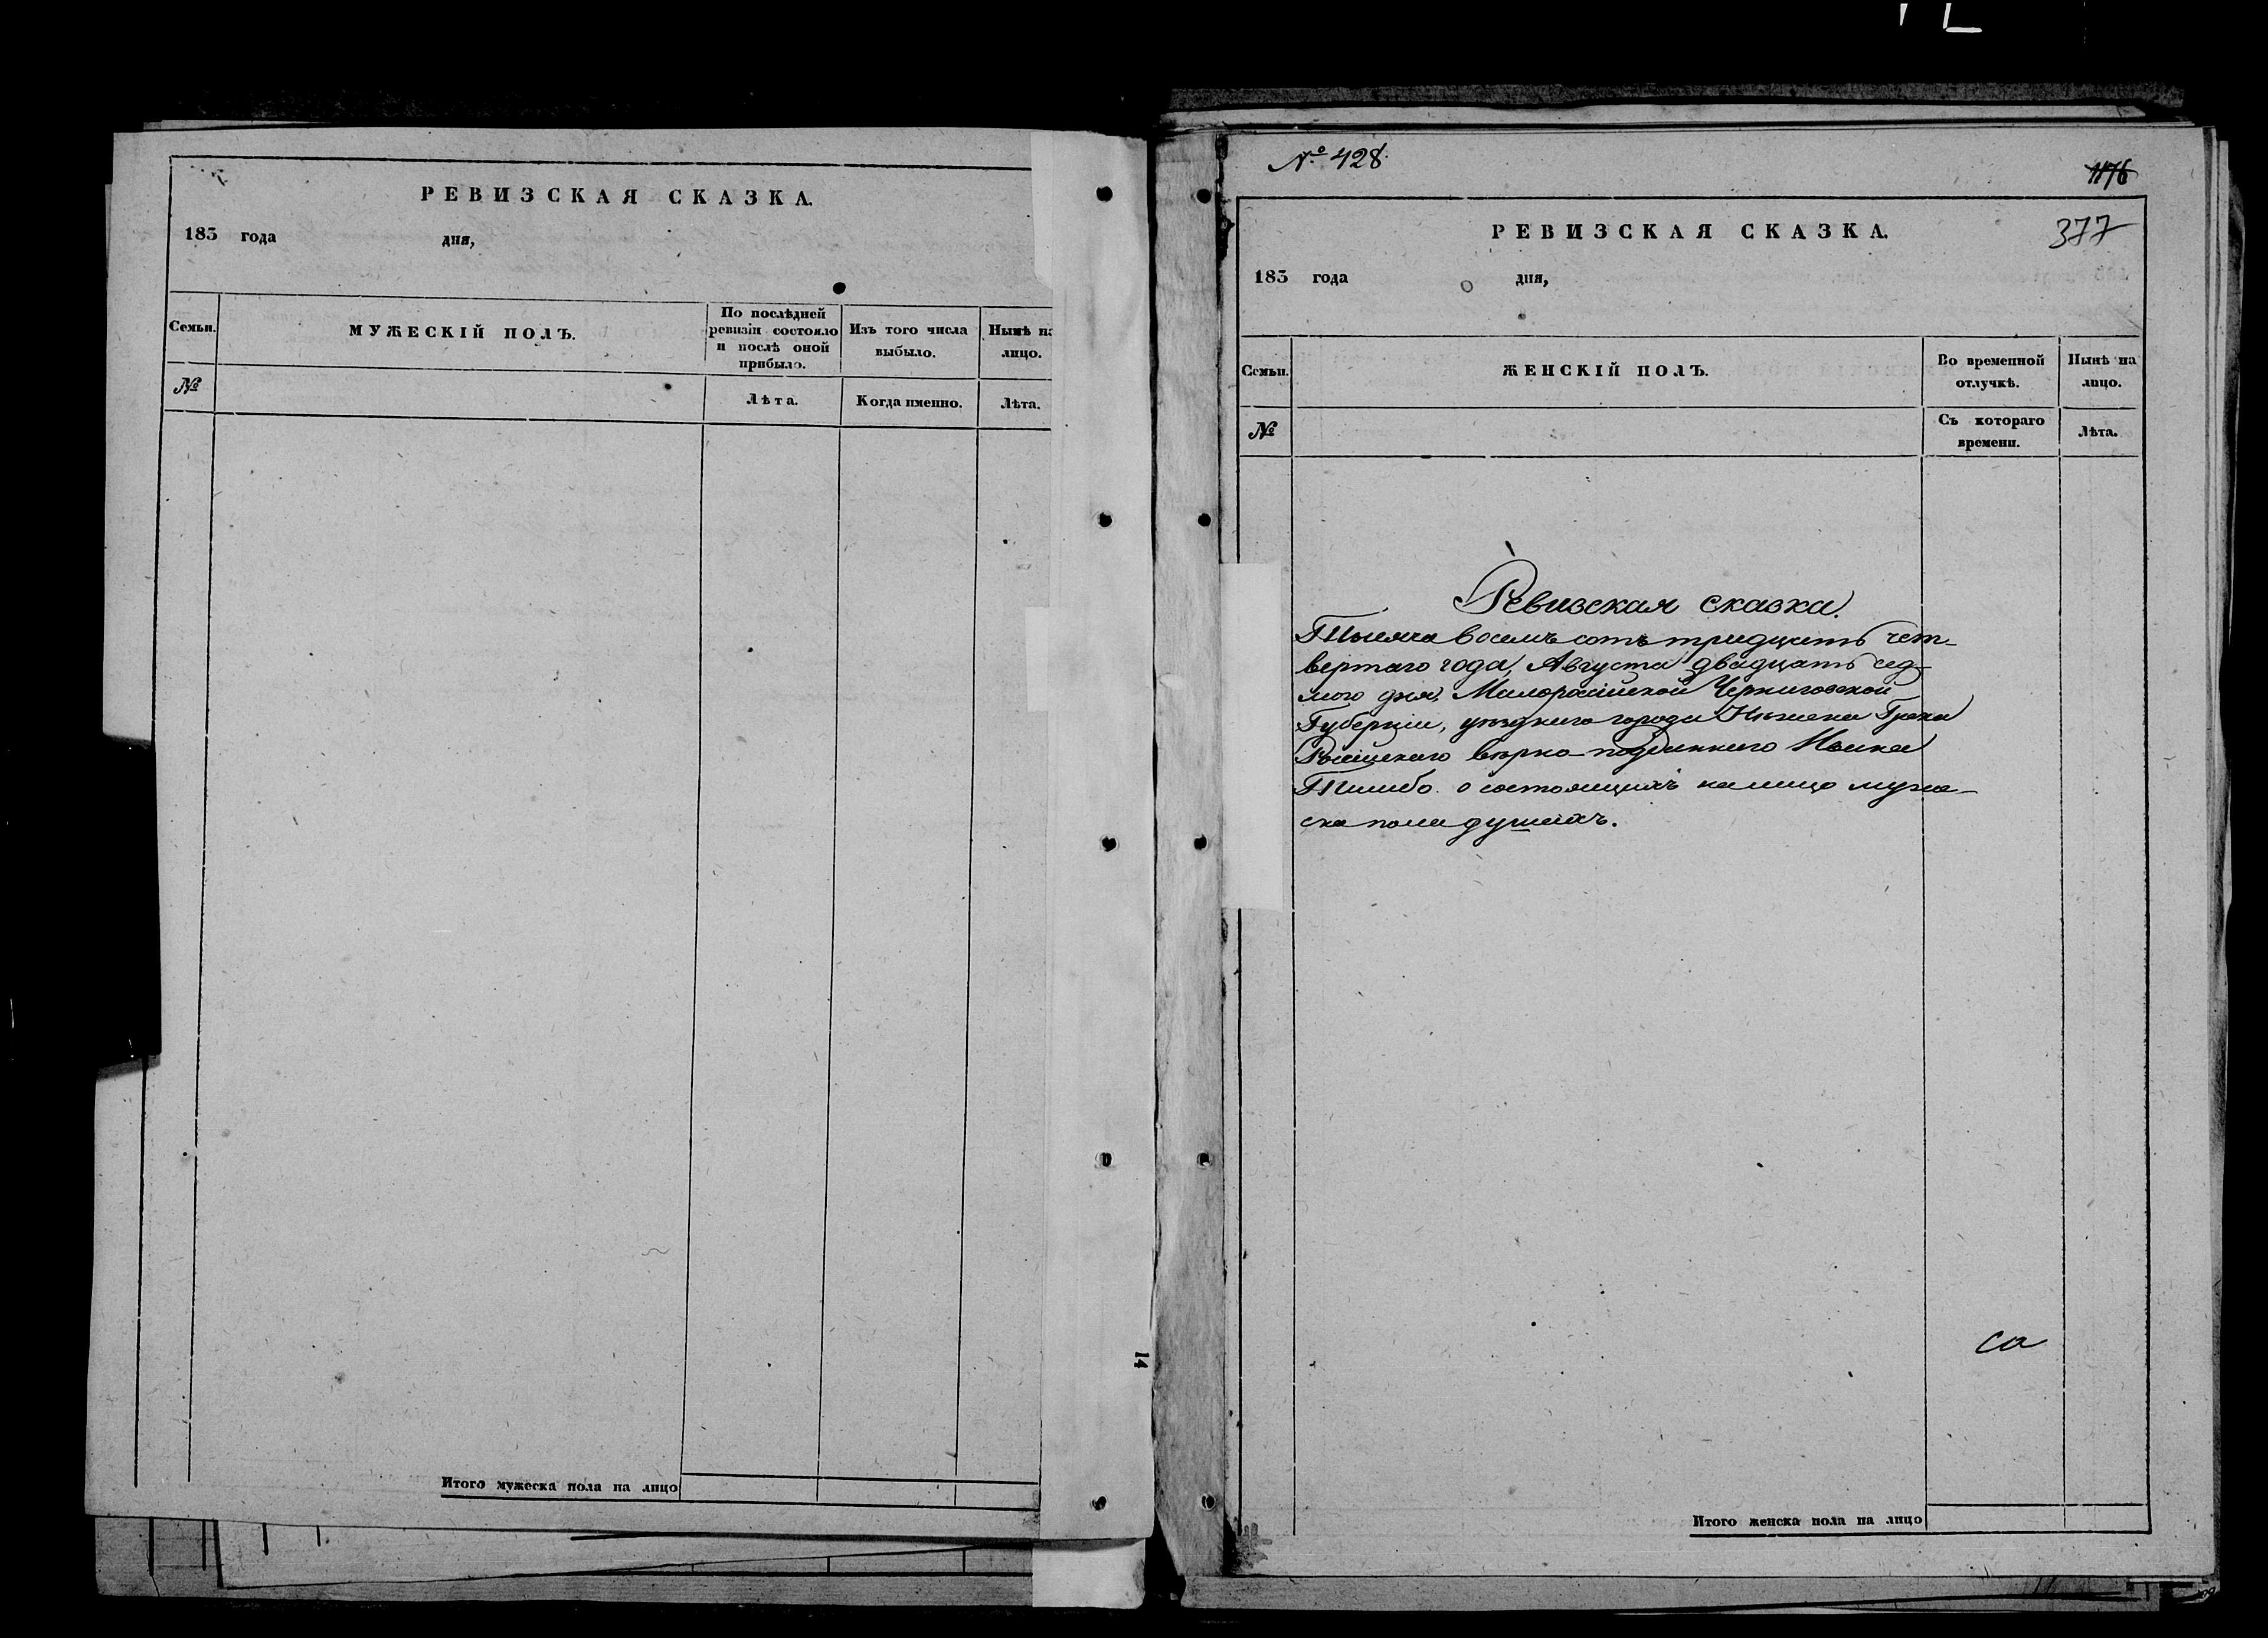 РЕВИЗСКАЯ СКАЗКА.
183 года дня,
Семьи.
МУЖЕСКІЙ ПОЛЪ.
По послѣдней ревизіи состояло и послѣ оной прибыло.
Изъ того числа выбыло.
Нынѣ на лицо.
№
Лѣта.
Когда именно.
Лѣта.
Итого мужеска пола на лицо
14
№ 428.
1176
377
РЕВИЗСКАЯ СКАЗКА.
183 года дня,
Семьи.
ЖЕНСКІЙ ПОЛЪ.
Во временной отлучкѣ.
Нынѣ на лицо.
№
Съ котораго времени.
Лѣта.
Ревизская сказка.
Тысяча восемь сотъ тридцать чет-
вертаго года, Августа двадцать сед-
мого дня, Малоросійской Черниговской
Губерніи, уѣзднаго города Нѣжина Грека
Російскаго вѣрно-подданнаго
о состоящихъ на лицо муже-
ска пола душахъ.
са
Итого женска пола на лицо